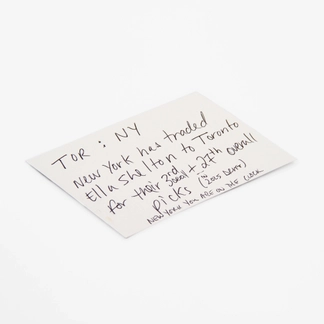 TOR : NY
New York has traded
Ella Shelton to Toronto
for their 3rd + 27th overall
Picks (in 2025 Draft)
NEW YORK YOU ARE ON THE CLOCK